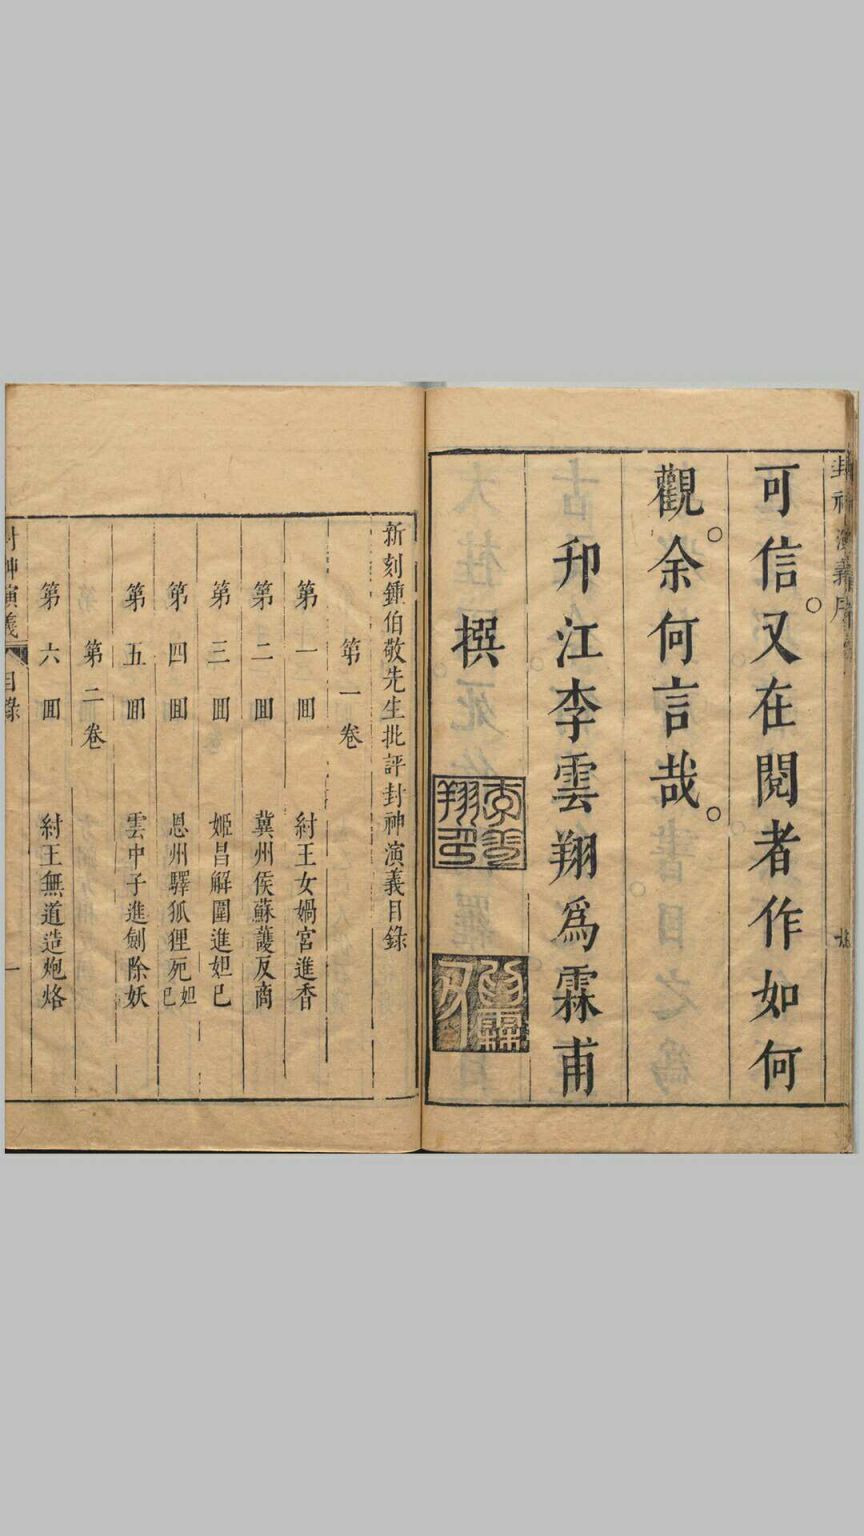 封神演義序
可信又在閱者作如何
觀余何言哉
邗江李雲翔爲霖甫
撰
李雲翔印
爲霖
新刻鍾伯敬先生批評封神演義目錄
第一卷
第一囬 紂王女媧宮進香
第二囬 冀州侯蘇護反商
第三囬 姬昌解圍進妲已
第四囬 恩州驛狐狸死妲已
第五囬 雲中子進劍除妖
第二卷
第六囬 紂王無道造炮烙
封神演義 目錄 一